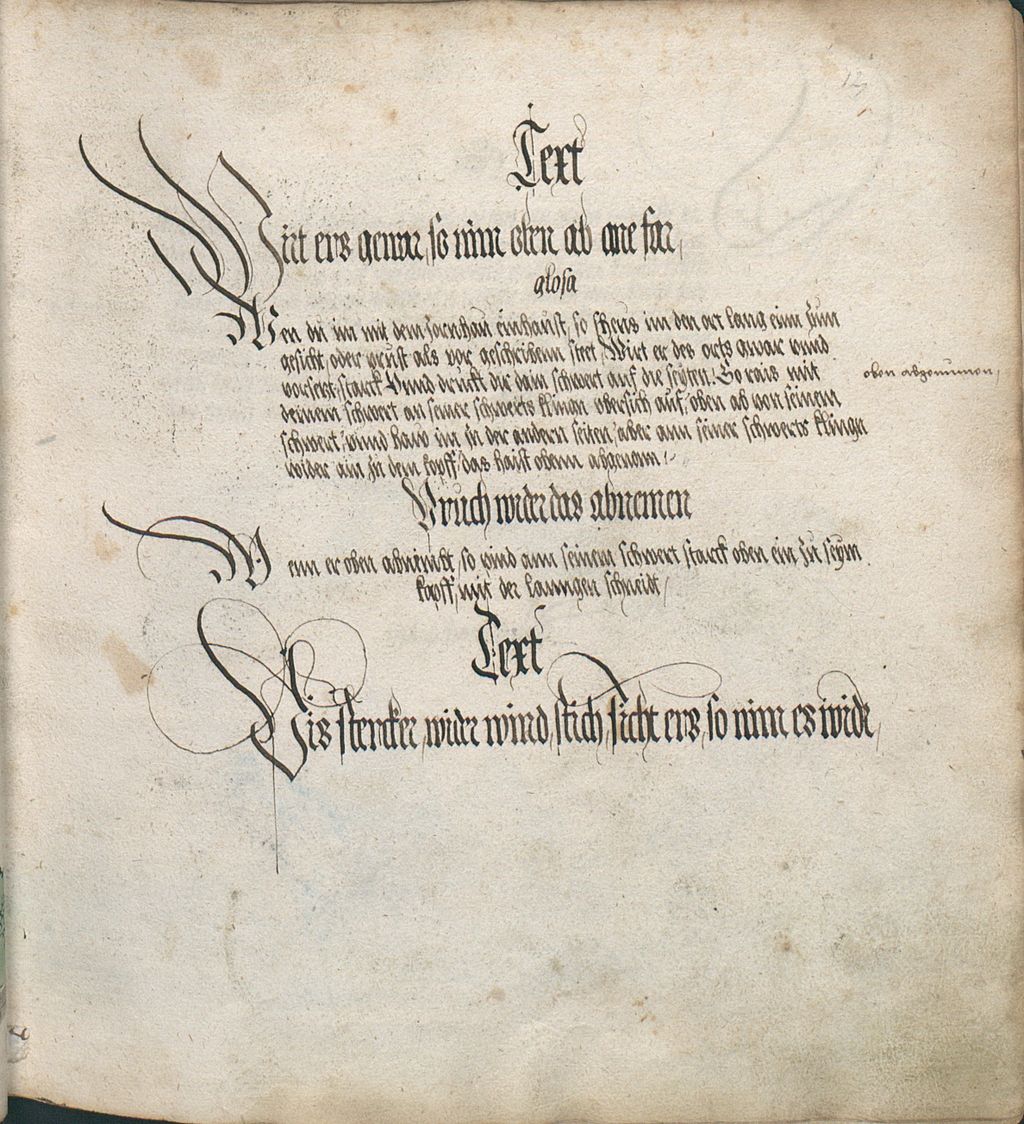 12
Text
Wirt ers gewar so nim oben ab ane far,
glosa
Wen du im mit dem zornhau einhaust, so scheus im den ort lang einn zum
gesicht, oder prust als vor geschribenn stett, Wirt er des orts gwar vund
vorsert, starck Vnnd druckt dir dain schwert auf die seyten. So rais mit
deinem schwert an seiner schwerts klingn vbersich auf, oben ab von seinem
schwert, vnnd haw im zu der andern seiten, aber ann seiner schwerts klingn
wider ain zu dem kopff, das haist obenn abgenom
oben abgenumen,
Bruch wider das abnemen
Wenn er oben abnimbt, so pind ann seinem schwert starck oben ein zu seym
kopff, mit der lanngen schneid,
Text
Bis stercker, wider wind, stich, sicht ers, so nim es nider,